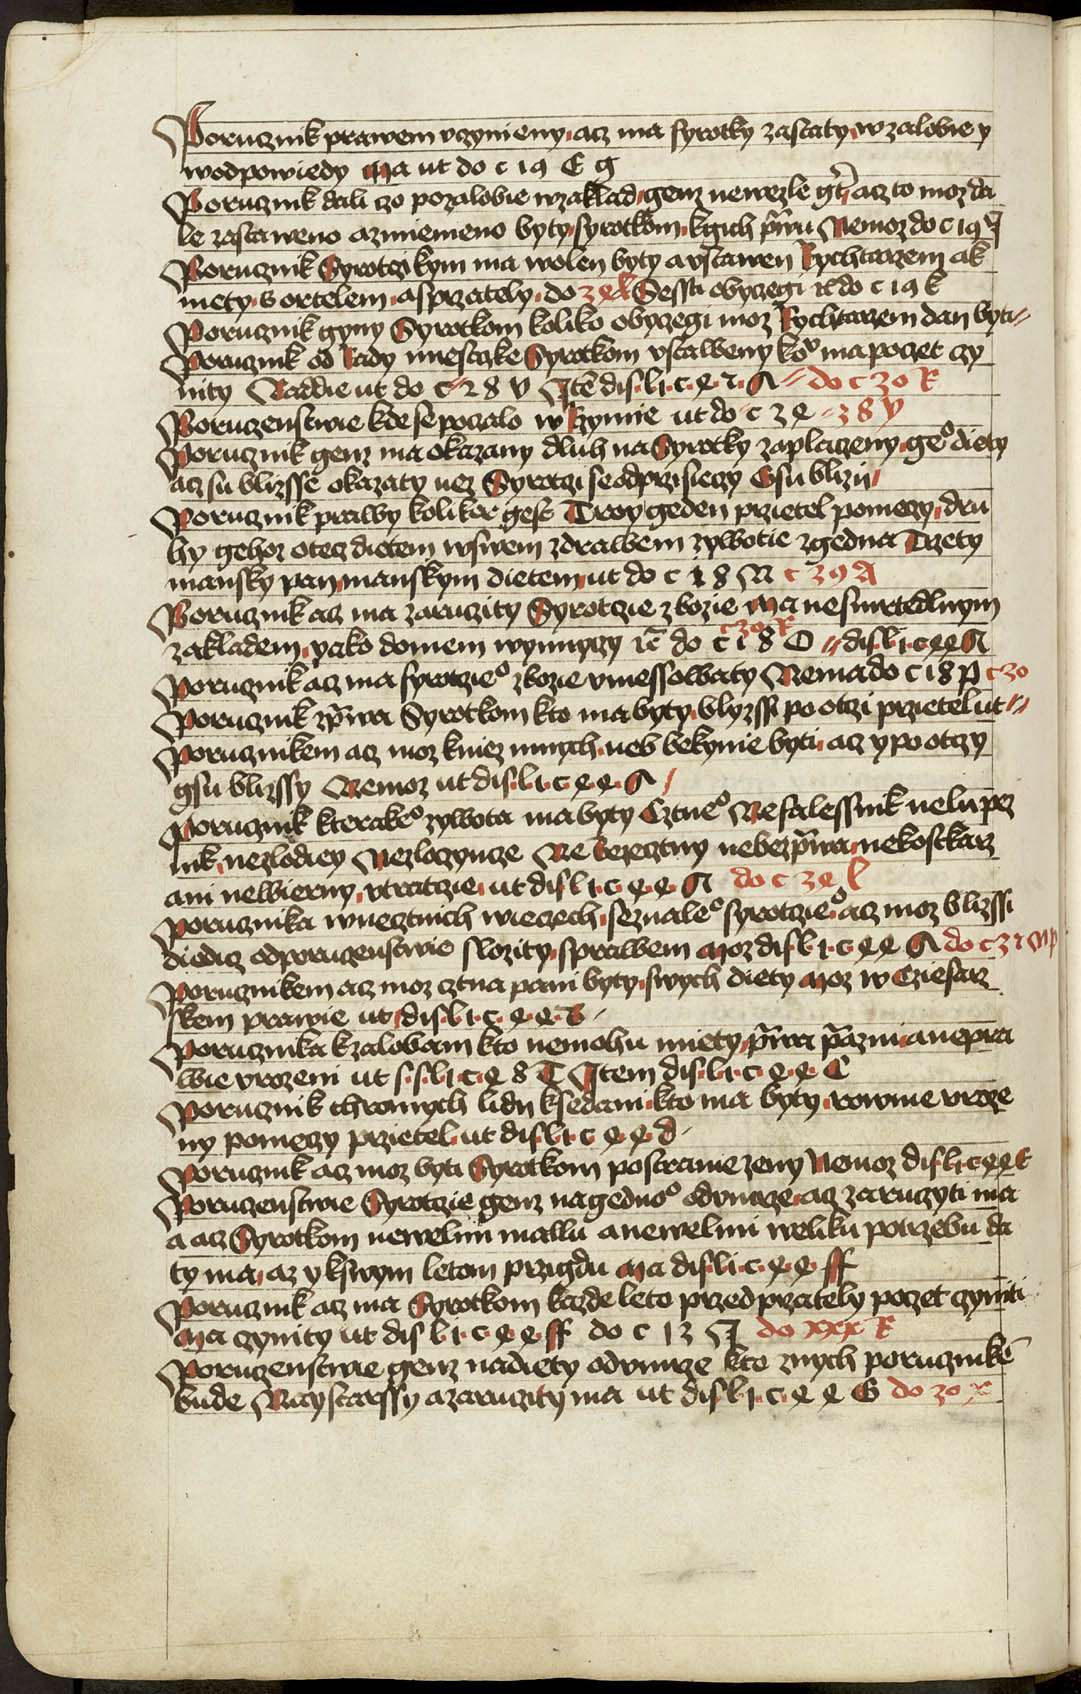 Porucznik prawem vczynieny acz ma syrotky zascaty w zalobie y
wodpowiedy Ma ut do c 19 E g
Porucznik dali czo pozalobie wzaklad genz newezle gt acz to moz da
le zastaweno a zmiemeno byty syrotkom kgich pwu Nemoz do c 19
Porucznik Syrotczkym ma wolen byty a vstawen Rychtarzem ak
mety s ortelem a sprzately do 32 l Sessti obyczegi ut do c 19 k
Porucznik gyny Syrotkom koliko obyczegi moz Rychtarzem dan byti
Porucznik od Rady miestczke Syrotkom vstalweny ko ma poczet czy
nity Naddie ut do c 28 v Ite dis li c 2 2 A do c 30 R
Poruczenstwie kde se poczalo w Rzymie ut do c 32 38 v
Porucznik genz ma okazany dluh na Syrotky zaplaczeny ge° diety
acz su blizsse okazaty nez Syrotczi se odprzisiezy Gsu blizij
Porucznik prawy kolikor gest Troy geden przietel pomeczy dru
hy gehoz otecz dietem wswem zdrawem zywotie zgedna Trzety
mansky pan manskym dietem ut do c 28 N c 39 A
Porucznik acz ma zaruczity Syrotczie zbozie Ma nesmrtedlnym
c 30 R
zakladem yako domem wynniczy ut do c 18 O dis li c 22 A
Porucznik acz ma syrotczie° zbozie vmessowaty Nema do c 18 p c 30
Porucznik zpwa Syrotkom kto ma byty blyzssi po otczi przietel ut
Porucznikem acz moz kniez mnych neb bekynie byti acz y po otczy
gsu blizssy Nemoz ut dis li c 2 2 A
Porucznik kterake° zywota ma byty Cztne° Ne falessnik ne lupez
nik nezlodiey Nezloczyncze Ne bezecztny nebezpwa nekostkarz
ani newierny vtratczie ut dis li c 2 2 A do c 32 l
Porucznika wnecztnich wieczech seznale° syrotczie° acz moz blizssi
diedicz od poruczenstwie slozity sprawem Moz dis li c 2 2 A do c 32 Mp
Porucznikem acz moz cztna pani byty swych diety Moz w Cziesarz
skem prawie ut dis li c 2 2 B
Porucznika kzalobam kto nemohu miety pwa pazni a nepra
wie vrozeni ut s s li c 2 8 T Item dis li c 2 2 C
Porucznik chromych lidy ksedani kto ma byty rownie vroze
ny pomeczy przietel ut dis li c 2 2 d
Porucznik acz moz byti Syrotkom postranie zeny Nemoz dis li c 22 E
Poruczenstwie Syrotczie genz na gedno° odvmrze acz zaruczyti ma
a acz Syrotkom newelmi mallu a newelmi weliku potrzebu da
ty ma az y kswym letom przigdu Ma dis li c 2 2 ff
Porucznik acz ma Syrotkom kazde leto przed przately poczet czyniti
Ma czynity ut dis li c 2 2 ff do c 13 J do xxx R
Poruczenstwie genz na diety odvmrze kto znych porucznike
bude Naystarssy a zaruczity ma ut dis li c 2 2 G do 30 x